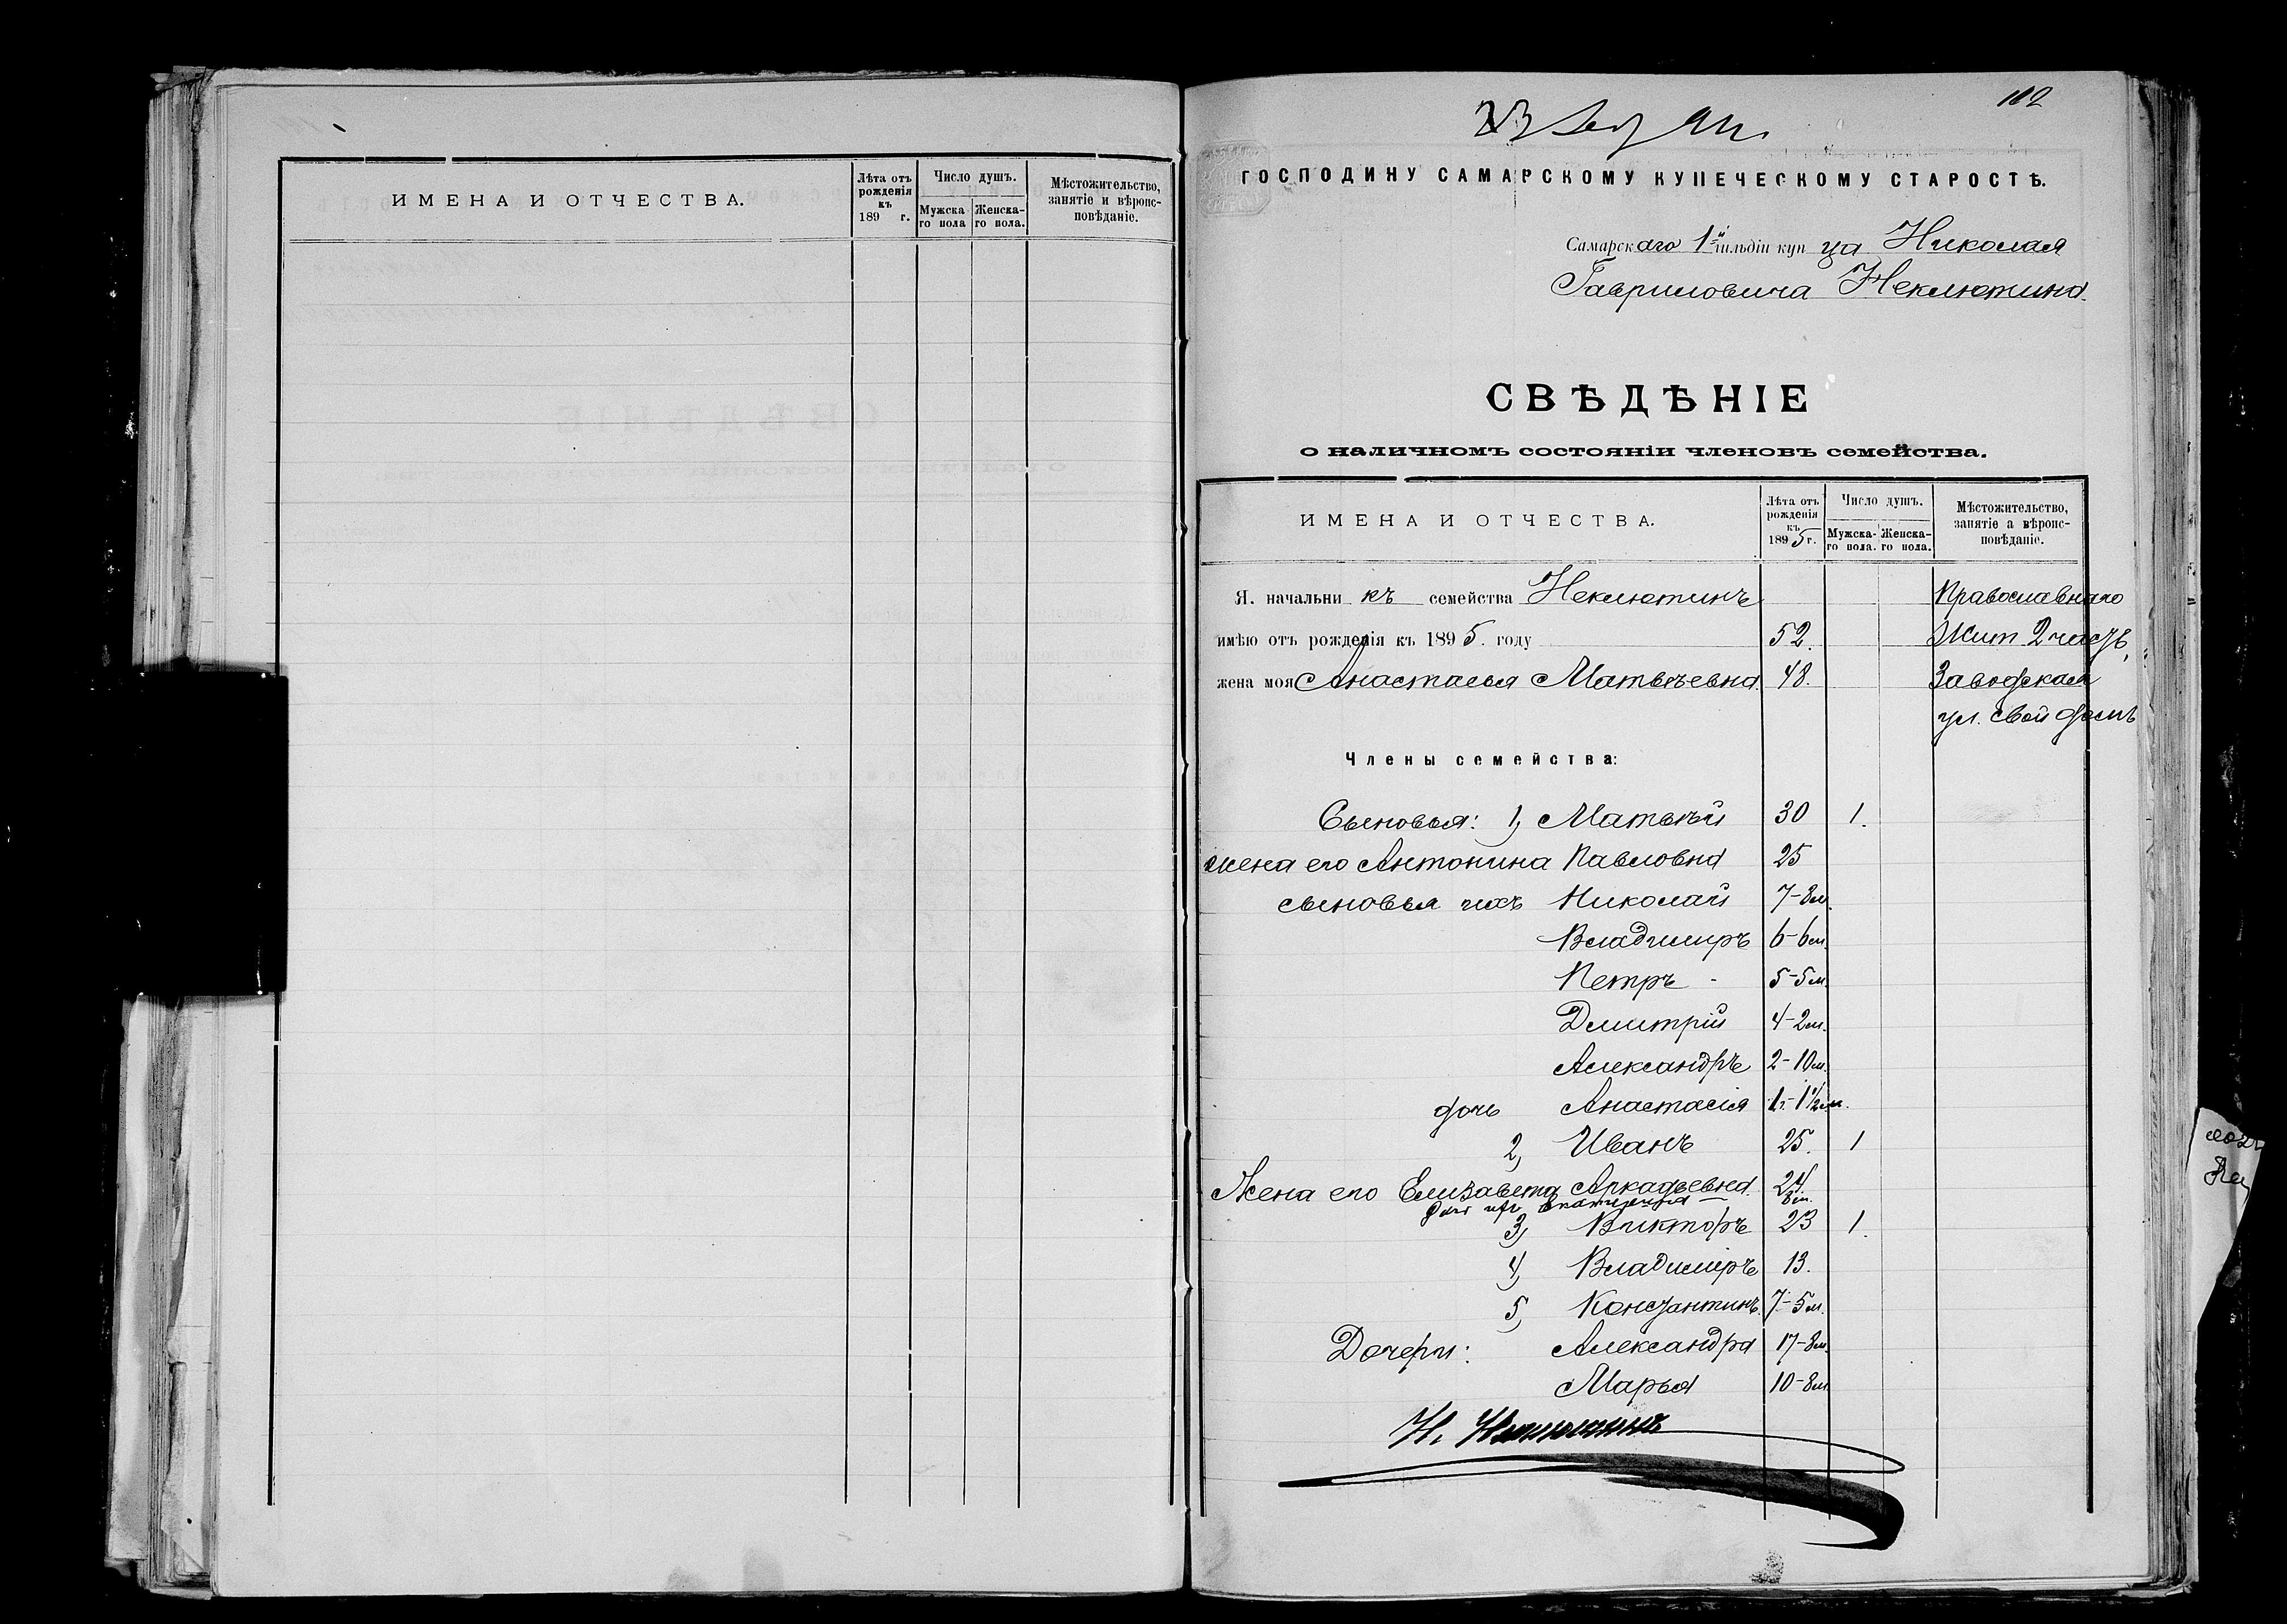 ИМЕНА И ОТЧЕСТВА.
Лѣта отъ
рожденія
къ
189 г.
Число душъ.
Мужска
го пола
Женска-
го пола.
Мѣстожительство,
занятіе и вѣроис-
повѣданіе.
182
ГОСПОДИНУ САМАРСКОМУ КУПЕЧЕСКОМУ СТАРОСТѢ.
Самарскаго 1й гильдіи купца Николая
Гавриловича Неклютина.
СВѢДѢНІЕ
о наличномъ состояніи членовъ семейства.
ИМЕНА И ОТЧЕСТВА.
Лѣта отъ
рожденія
къ
1895 г.
Число душъ.
Мужска-
го пола.
Женска-
го пола.
Мѣстожительство,
занятіе а вѣроис-
повѣданіе.
Я. начальникъ семейства Неклютинъ Православнаго
имѣю отъ рожденія къ 1895. году 52. Жит 2 часть,
жена моя Анастасья Матвѣевна. 48. Заводская
ул. свой домъ
Члены семейства:
Сыновья: 1, Матвѣй 30 1.
жена его Антонина Павловна 25
сыновья ихъ Николай 7-8м.
Владимиръ 6-6м.
Петръ - 5-5м.
Дмитрій 4-2м.
Александръ 2-10м.
дочь Анастасія 1г.-1 1/2 м.
2, Иванъ 25. 1
Жена его Елизавета Аркадьевна. 24
дочь ихъ Екатерина 8м.
3, Викторъ 23 1.
4, Владиміръ 13.
5, Константинъ. 7-5м.
Дочери: Александра 17-8м.
Марья 10-8м.
Н. Неклютинъ